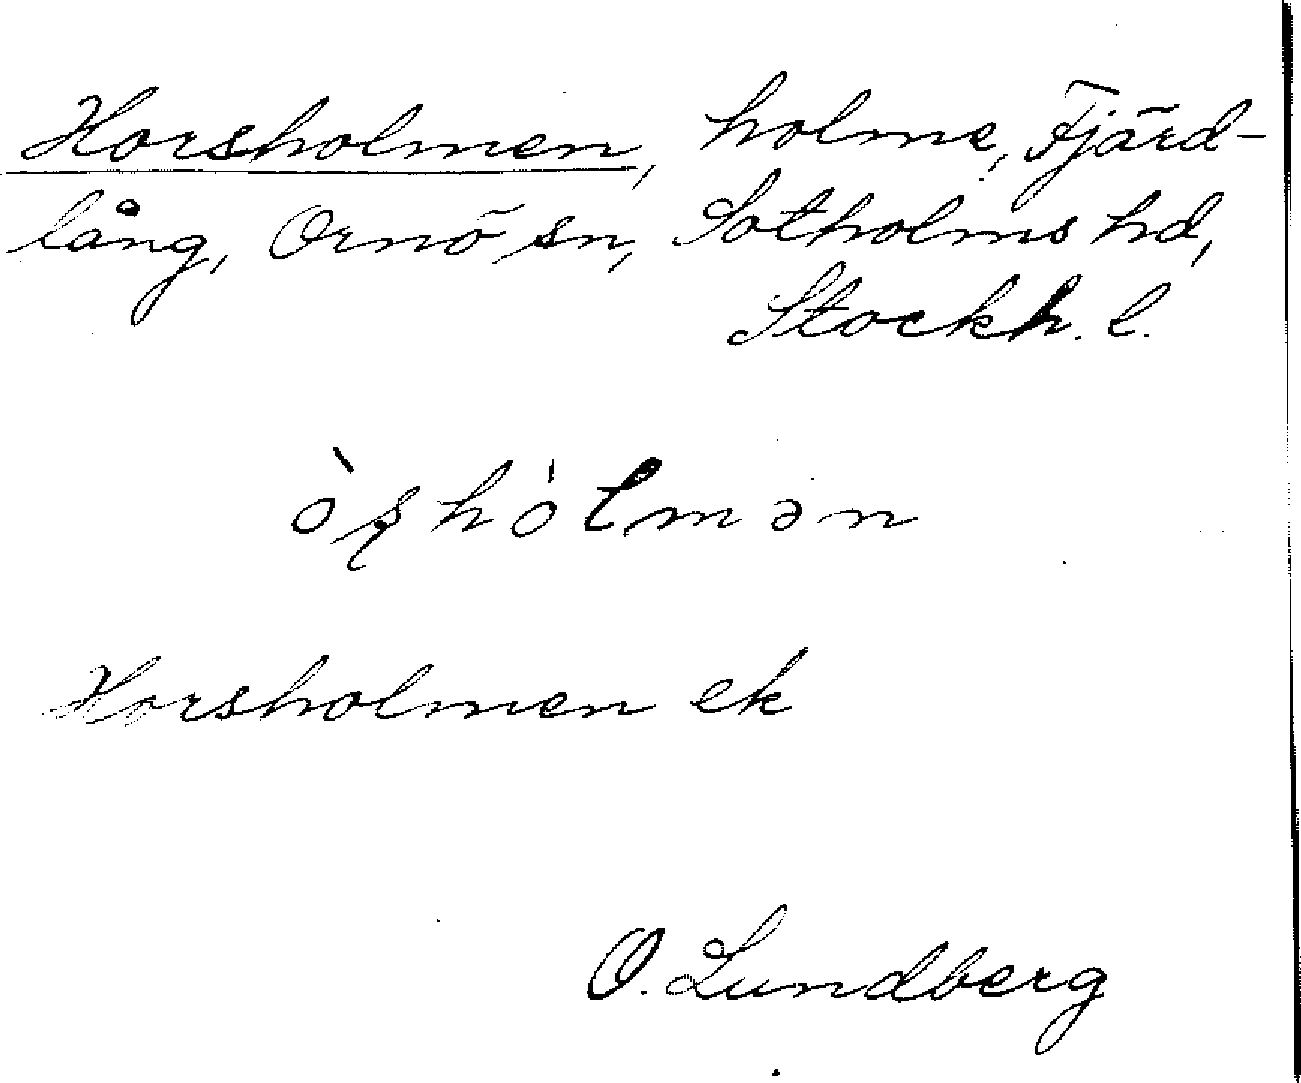 Horsholmen, holme, Fjärd-
lång, Ornö sn, Sotholms hd,
Stockh. l.
òʂhólmən
Horsholmen ek
O. Lundberg